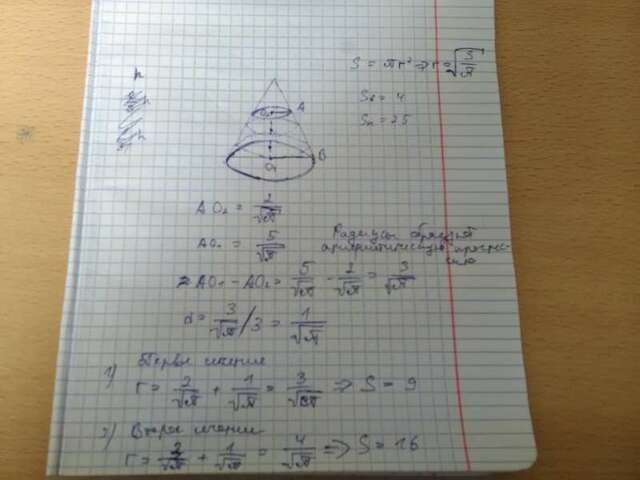 S = πr² ⇒ r = √(S/π)
S₁ = 4
Sₙ = 25
A
B
O₁
AO₂ = 2/√π
AO₁ = 5/√π
Радиусы образуют
арифметическую прогрес-
сию
AO₁ - AO₂ = 5/√π - 2/√π = 3/√π
d = 3/√π / 3 = 1/√π
1) Первое сечение
r = 2/√π + 1/√π = 3/√π ⇒ S = 9
2) Второе сечение
r = 3/√π + 1/√π = 4/√π ⇒ S = 16